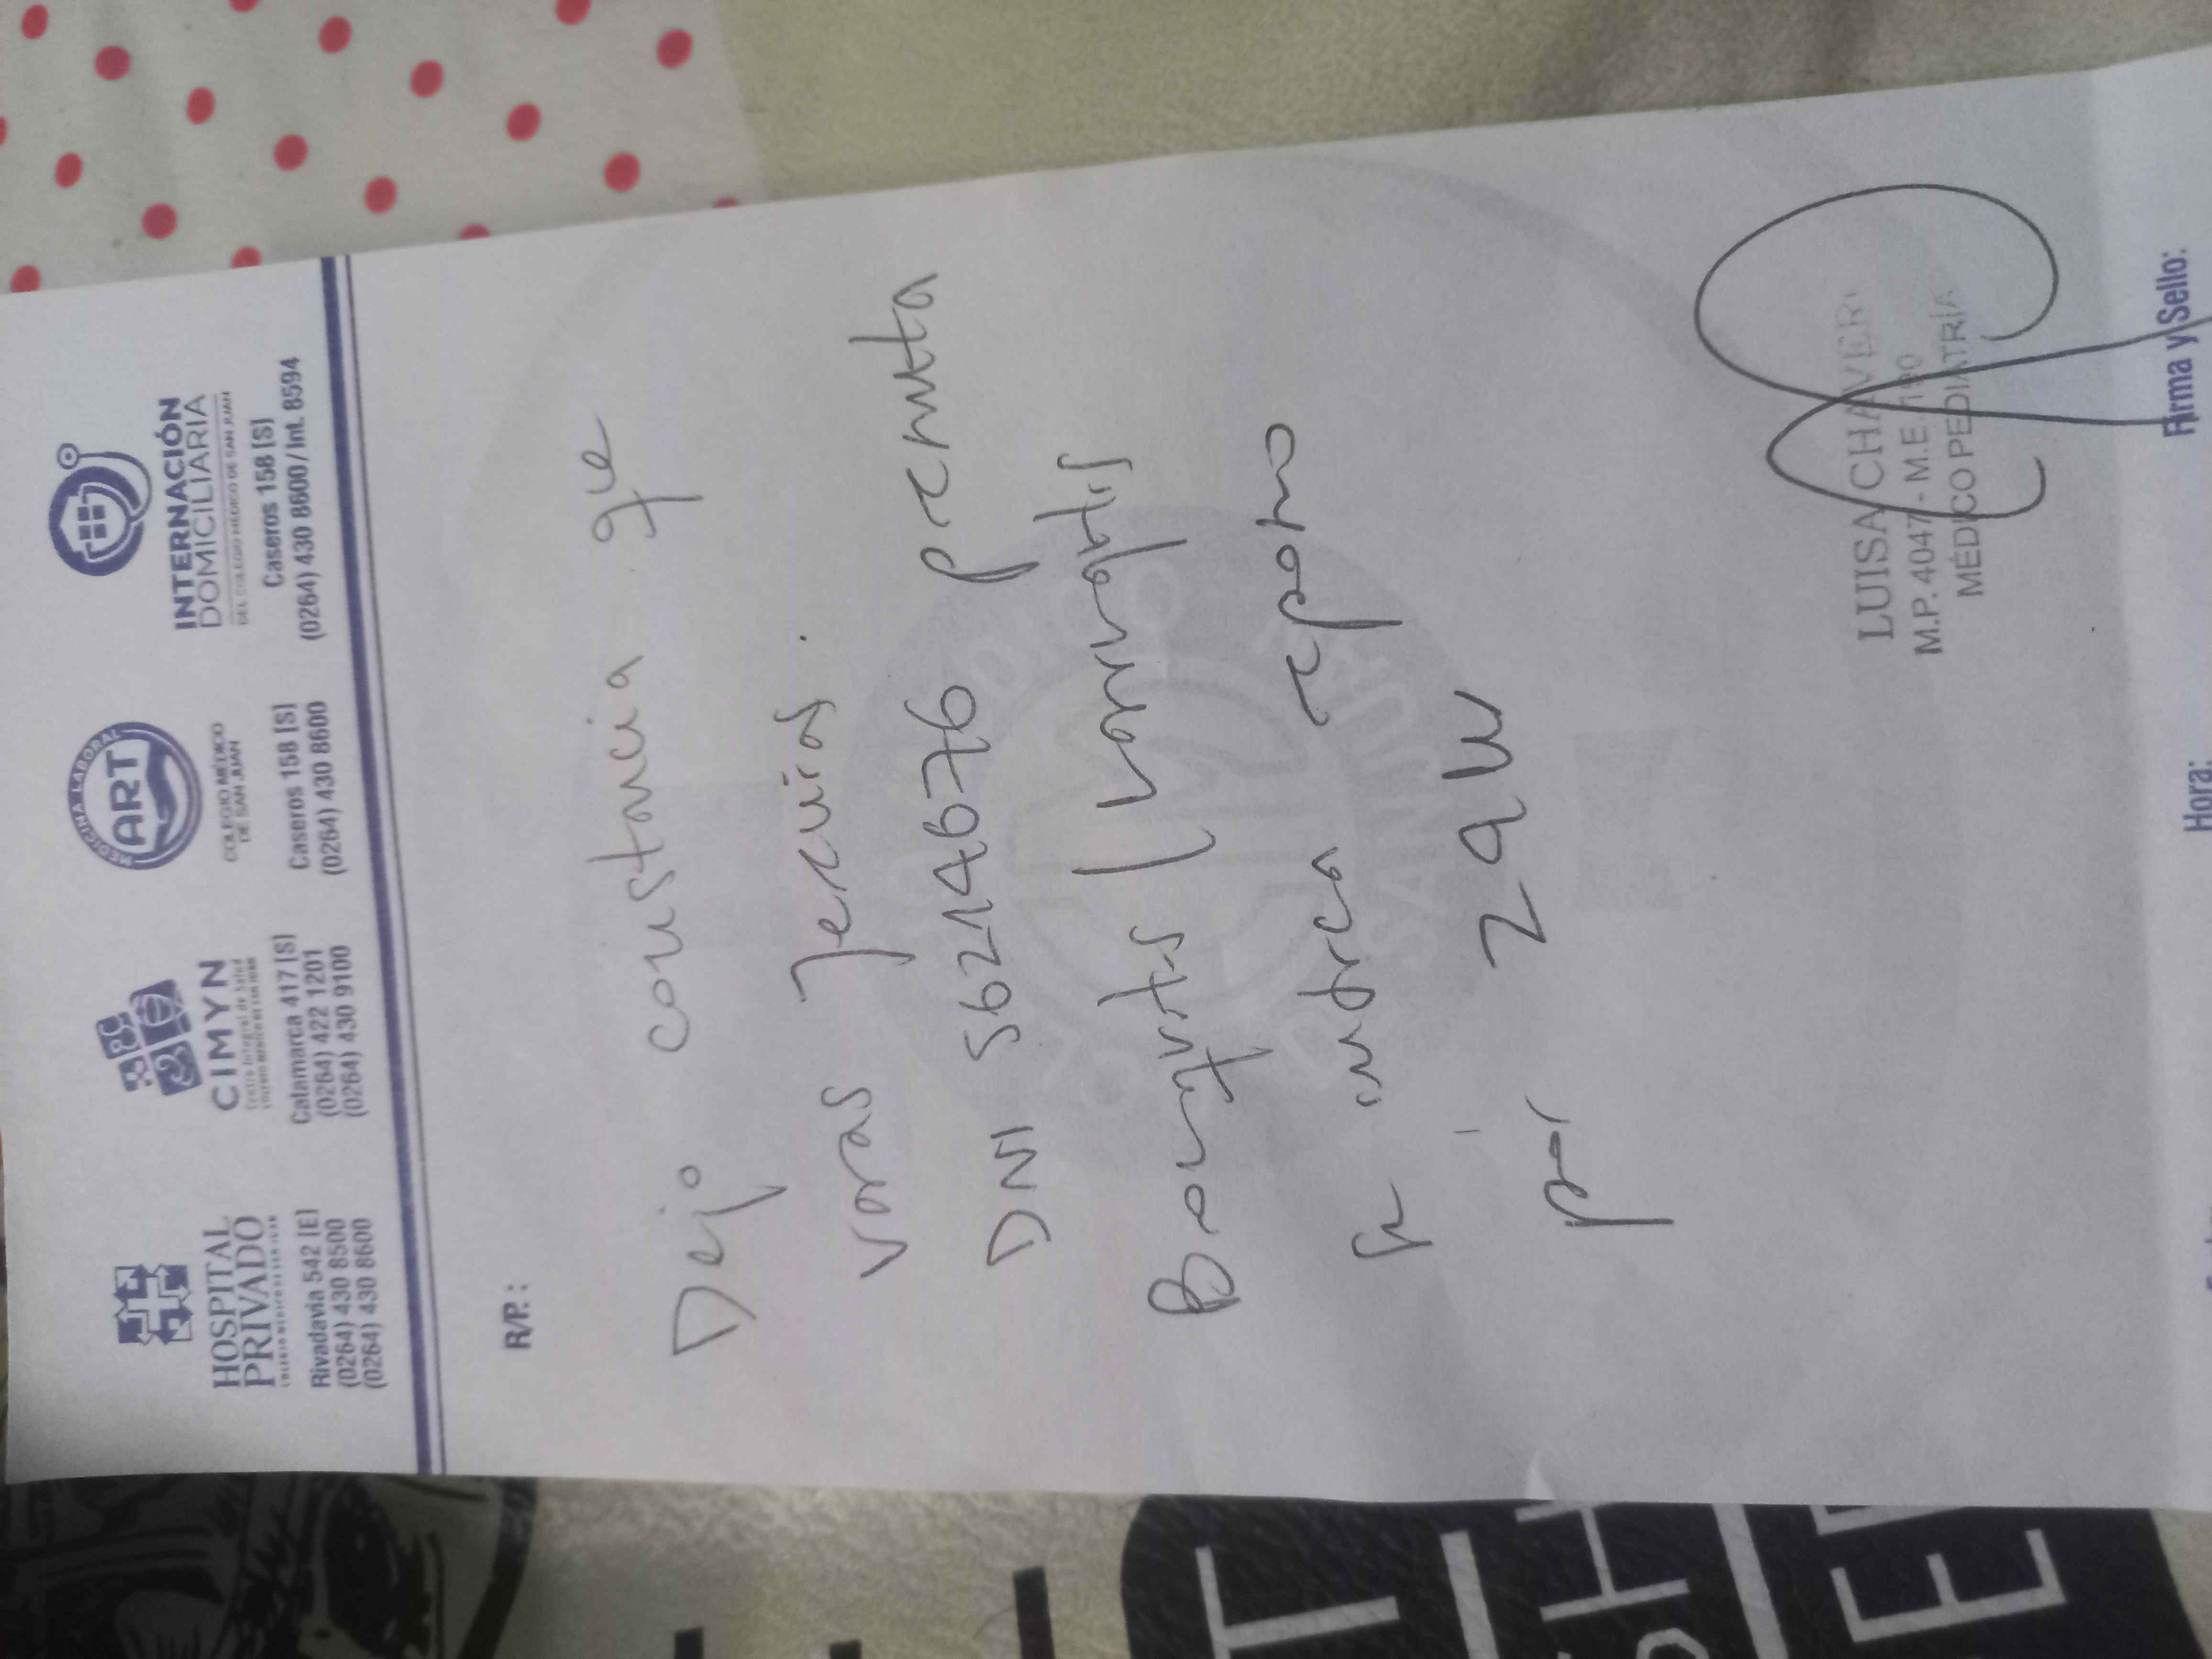 HOSPITAL
PRIVADO
COLEGIO MEDICO DE SAN JUAN
Rivadavia 542 [E]
(0264) 430 8500
(0264) 430 8600
CIMYN
Centro Integral de Salud
Catamarca 417 [S]
(0264) 422 1201
(0264) 430 9100
MEDICINA LABORAL
ART
COLEGIO MÉDICO
DE SAN JUAN
Caseros 158 [S]
(0264) 430 8600
INTERNACIÓN
DOMICILIARIA
DEL COLEGIO MEDICO DE SAN JUAN
Caseros 158 [S]
(0264) 430 8600 / Int. 8594
R/P.:
Dejo constancia que
Varas
DNI 56214676 presenta
Bronquitis / Laringitis
Se indica reposo
por
LUISA CHAVER
M.P. 4047 - M.E.
MÉDICO PEDIATRÍA
Hora:
Firma y Sello: